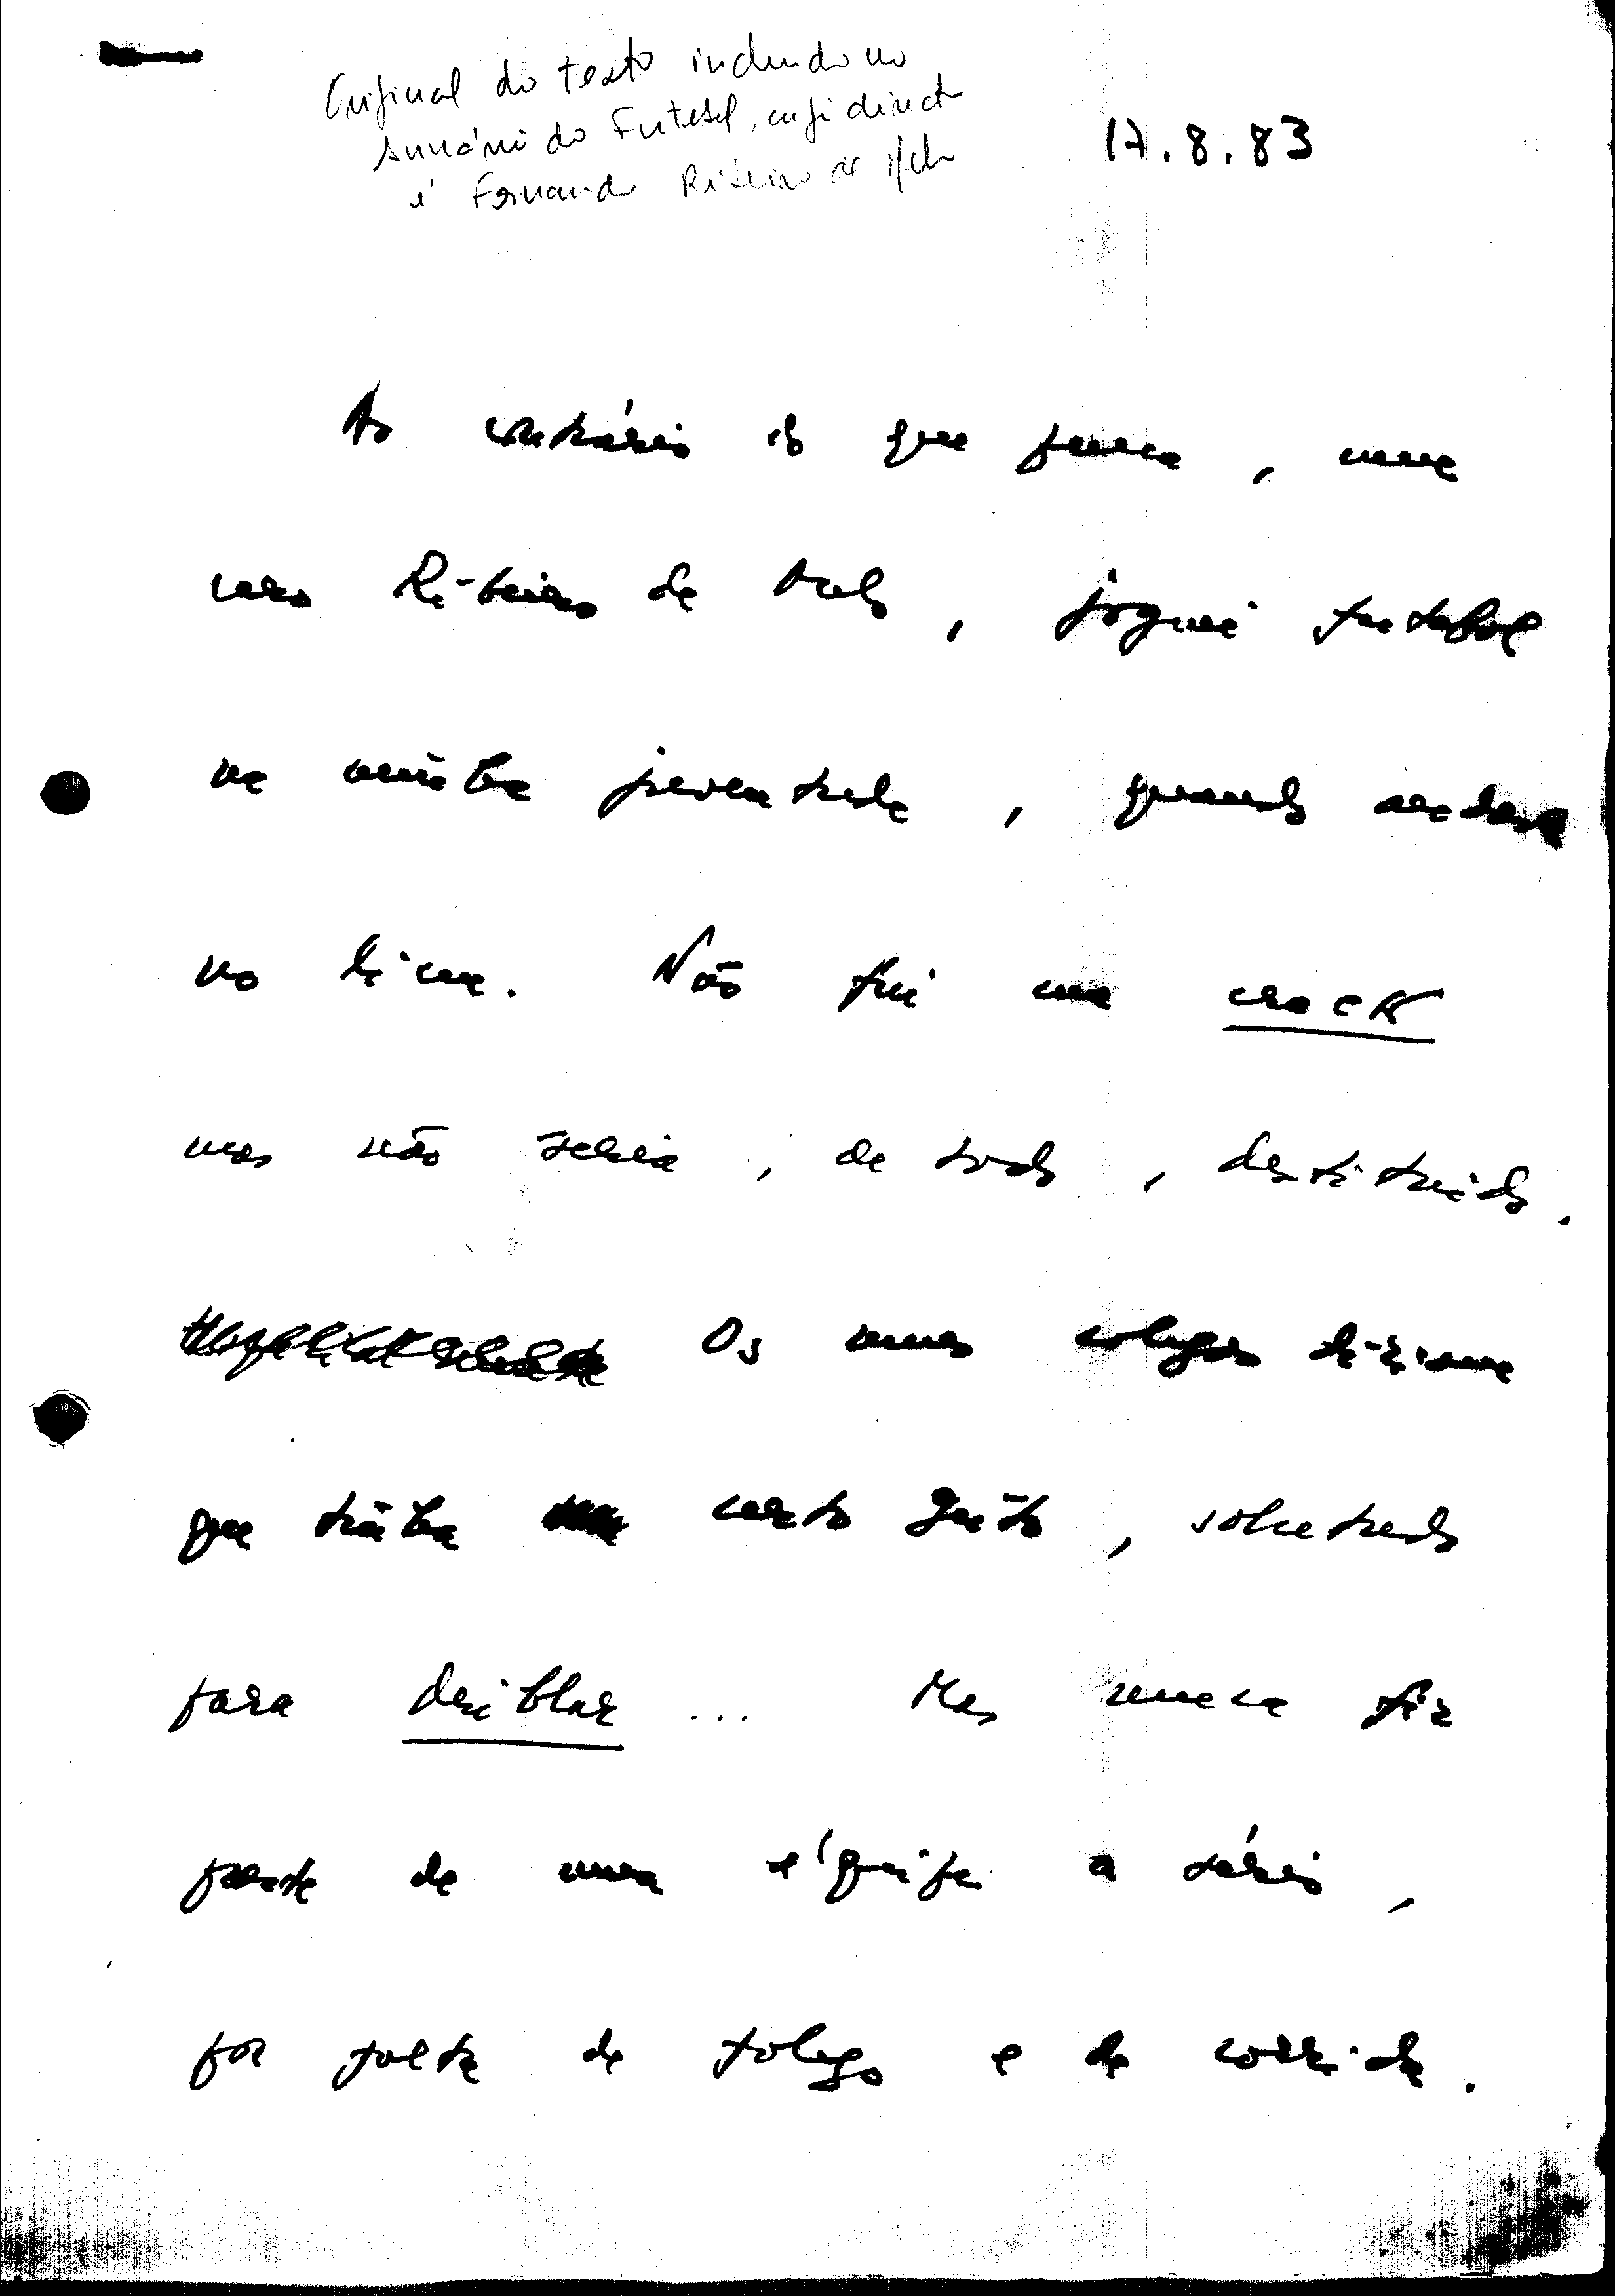 Original do texto incluido no
Anuário do Futebol, cujo director
é Fernando Ribeiro de Melo
17.8.83
Ao contrário do que pensa, meu
caro Ribeiro de Melo, joguei futebol
na minha juventude, quando andava
no liceu. Não fui um crack
mas não seria, de todo, destituído.
Os meus colegas diziam
que tinha certo jeito, sobretudo
para driblar... Mas nunca fiz
parte de uma équipe a sério,
por falta de folego e de corrida.